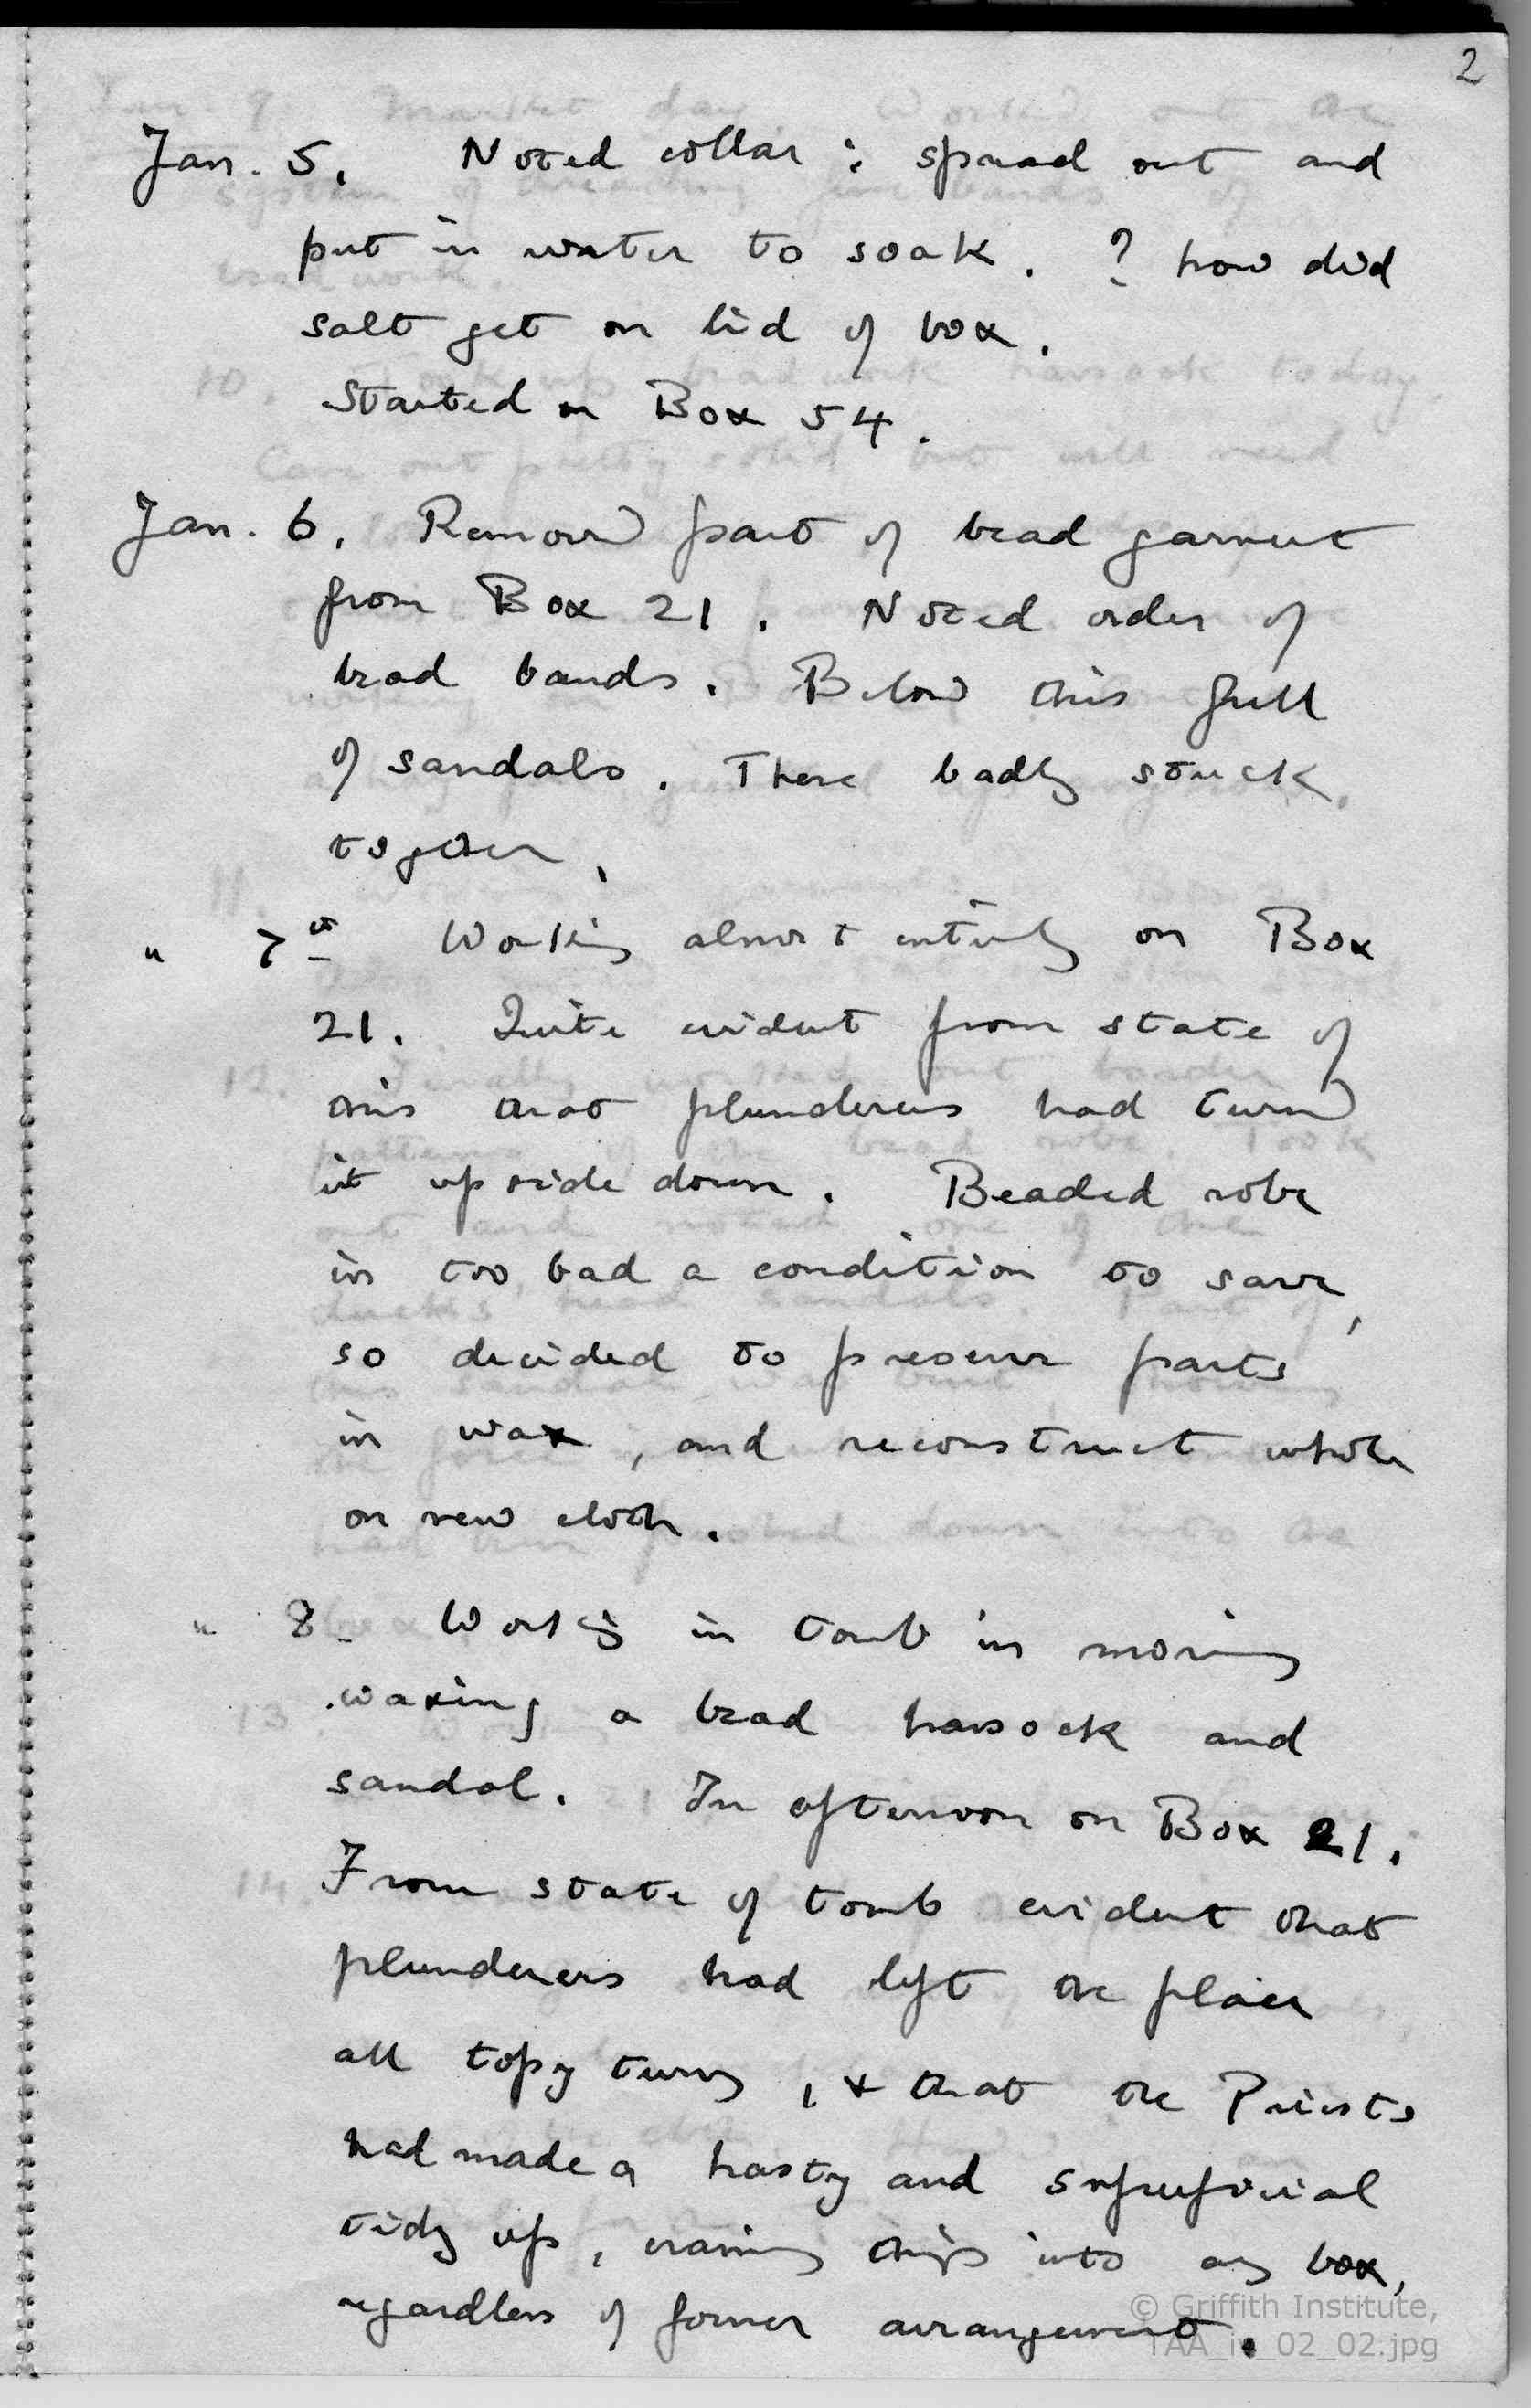 2
Jan. 5. Noted collar: spread out and
put in water to soak. ? how did
salt get on lid of box.
Started on Box 54.
Jan. 6. Removed part of bead garment
from Box 21. Noted order of
bead bands. Below this full
of sandals. These badly stuck
together.
" 7th Working almost entirely on Box
21. Quite evident from state of
this that plunderers had turned
it upside down. Beaded robe
in too bad a condition to save,
so decided to preserve parts
in wax, and reconstruct whole
on new cloth.
" 8. Working in tomb in morning
waxing a bead hassock and
sandal. In afternoon on Box 21.
From state of tomb evident that
plunderers had left the place
all topsy turvy, & that the Priests
had made a hasty and superficial
tidy up, cramming things into any box,
regardless of former arrangement.
© Griffith Institute,
02_02.jpg